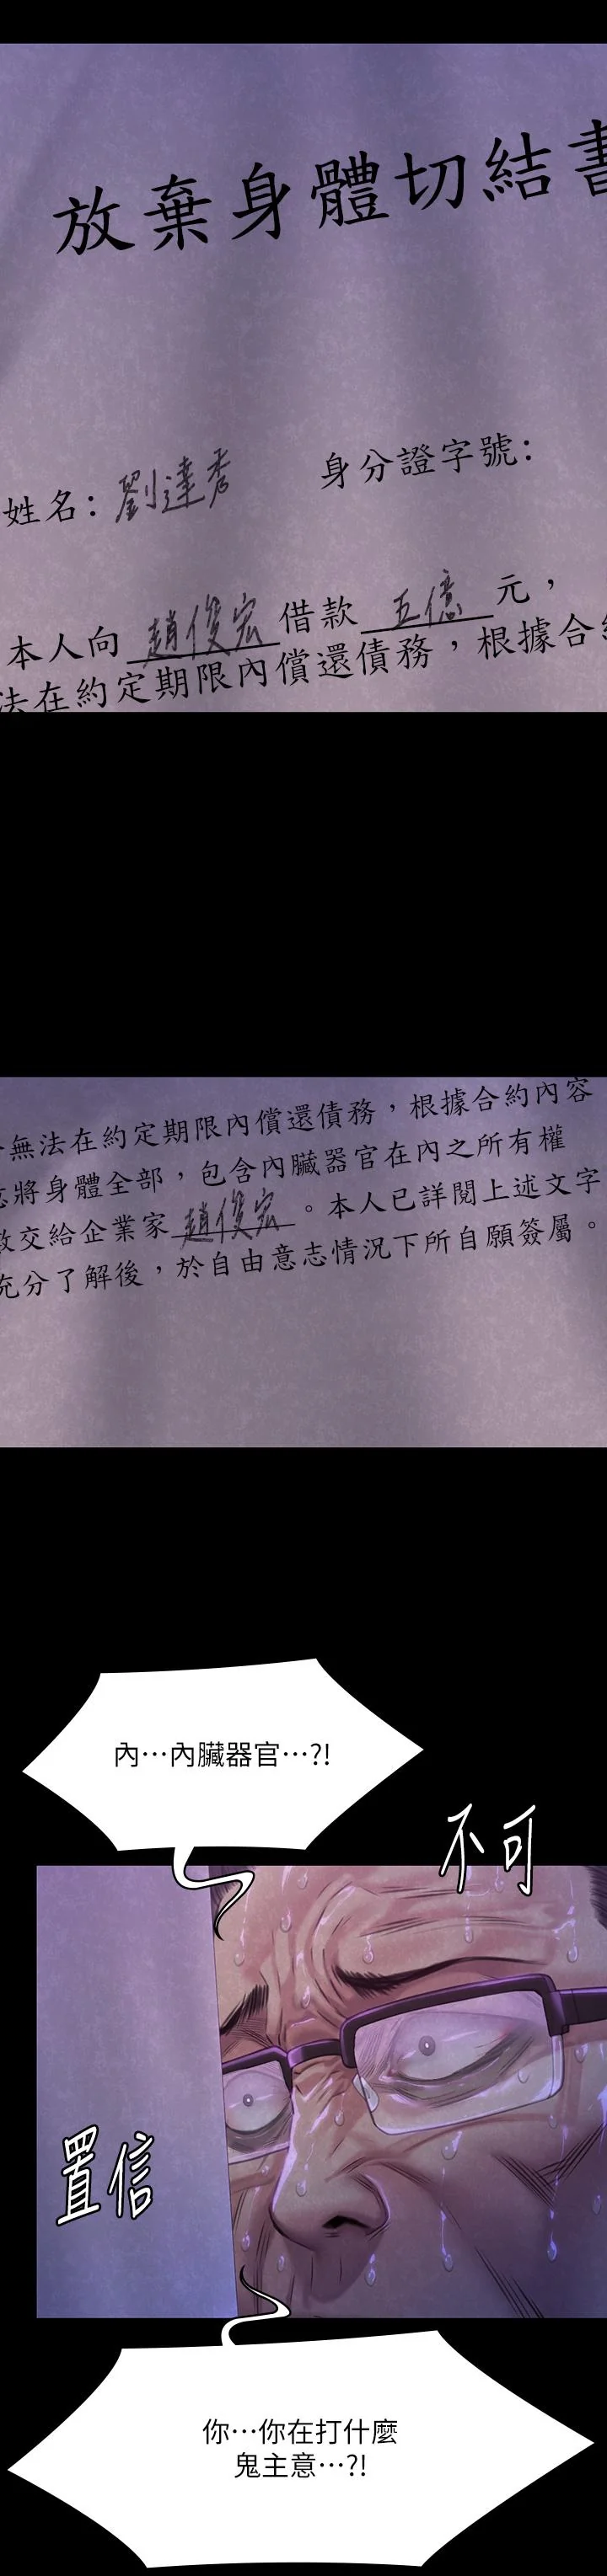 放棄身體切結書
姓名：劉達秀 身分證字號：
本人向趙俊宏借款五億元，
法在約定期限內償還債務，根據合約
無法在約定期限內償還債務，根據合約內容
將身體全部，包含內臟器官在內之所有權
交給企業家趙俊宏。本人已詳閱上述文字
充分了解後，於自由意志情況下所自願簽屬。
內⋯內臟器官⋯?!
不可
置信
你⋯你在打什麼
鬼主意⋯?!